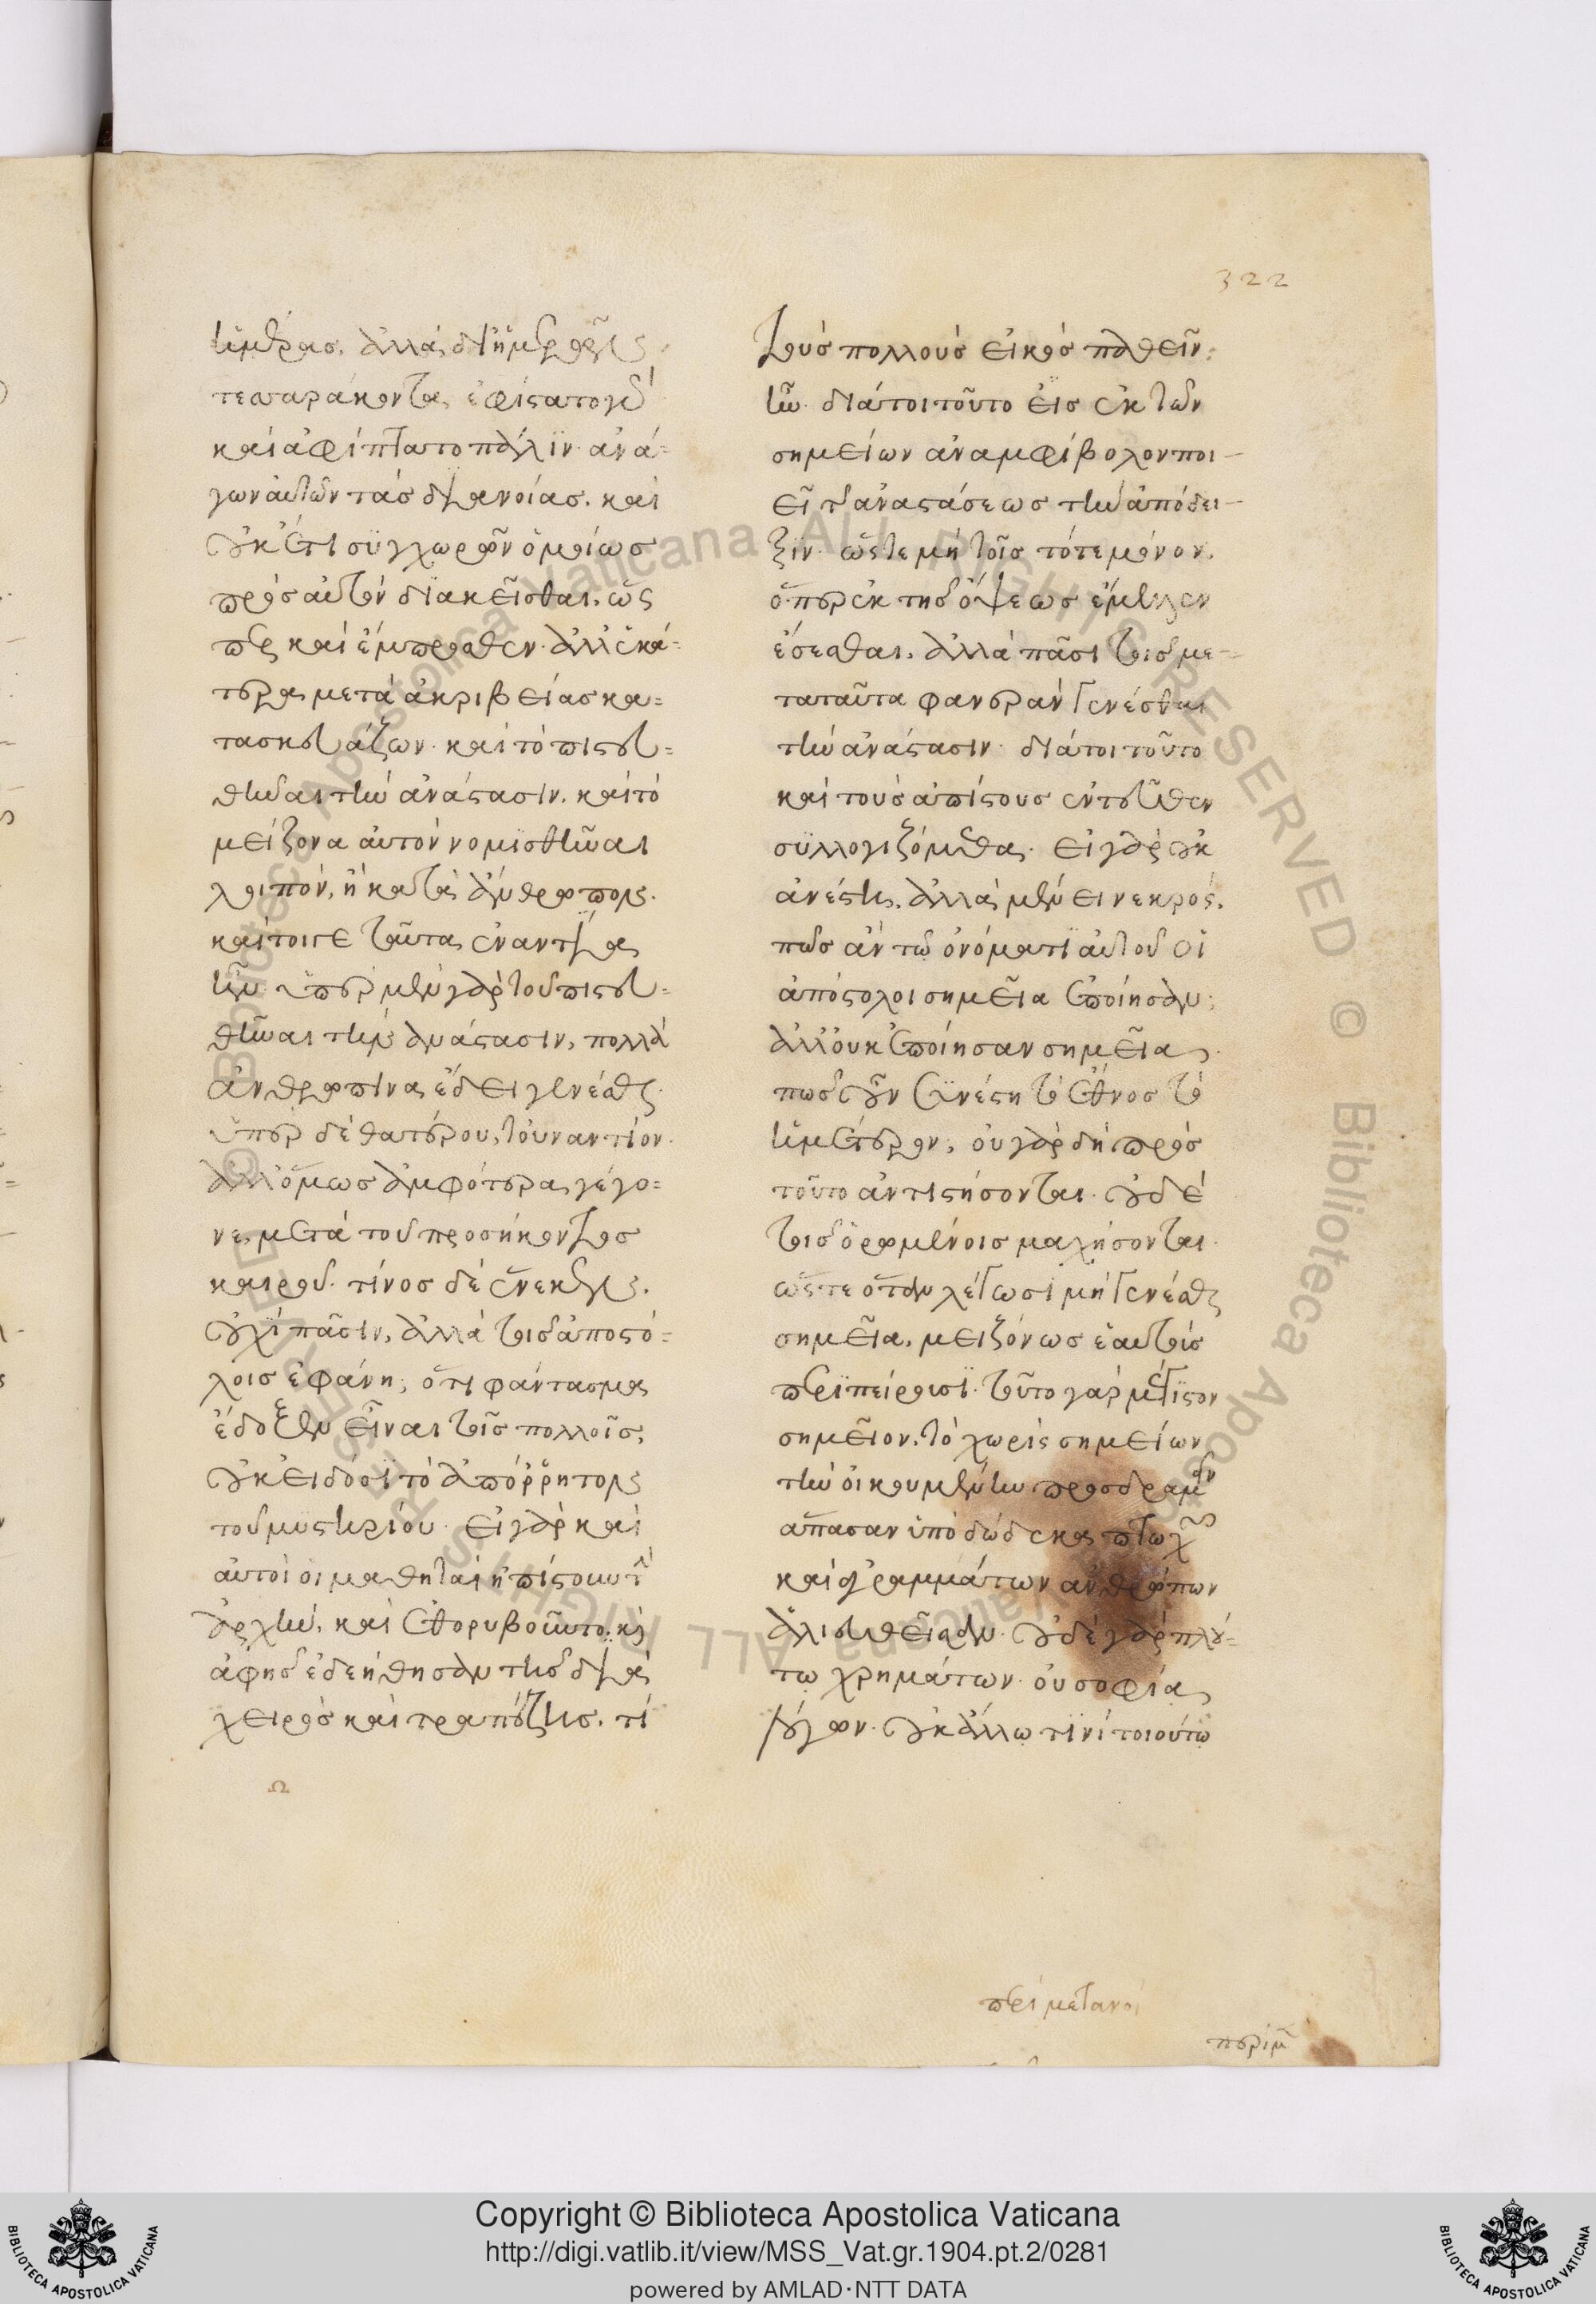 322
ἡμέρας. ἀλλὰ δι' ἡμερῶν
τεσσαράκοντα ἐφίστατο γὰρ
καὶ ἀφίπτατο πάλϊν· ἀνά-
γων αὐτῶν τὰς διανοίας. καὶ
οὐκέτι συγχωρῶν ὁμοίως
πρὸς αὐτὸν διακεῖσθαι, ὥς
περ καὶ ἔμπροσθεν· ἀλλ' ἑκά-
τερα μετὰ ἀκριβείας κα-
τασκευάζων· καὶ τὸ πιστευ-
θῆναι τὴν ἀνάστασιν. καὶ τὸ
μείζονα αὐτὸν νομισθῆναι
λοιπόν, ἢ κατὰ ἄνθρωπον.
καίτοιγε ταῦτα ἐναντία
ἦν· ὑπὲρ μὲν γὰρ τοῦ πιστευ-
θῆναι τὴν ἀνάστασιν, πολλὰ
ἀνθρώπινα ἔδει γενέσθαι·
ὑπὲρ δὲ θατέρου, τοὐναντίον·
ἀλλ' ὅμως ἀμφότερα γέγο-
νε, μετὰ τοῦ προσήκοντος
καιροῦ. τίνος δὲ ἕνεκεν
οὐχὶ πᾶσιν, ἀλλὰ τοῖς ἀποστό-
λοις ἐφάνη; ὅτι φάντασμα
ἔδοξεν εἶναι τοῖς πολλοῖς,
οὐκ εἰδόσι τὸ ἀπόρρητον
τοῦ μυστηρίου· εἰ γὰρ καὶ
αὐτοὶ οἱ μαθηταὶ ἠπίστουν τὴν
ἀρχὴν, καὶ ἐθορυβοῦντο. καὶ
ἁφῆς ἐδεήθησαν τῆς διὰ
χειρὸς καὶ τραπέζης. τί
Ω
τοὺς πολλοὺς εἰκὸς παθεῖν;
ἦν· διάτοι τοῦτο εἰς ἐκ τῶν
σημείων ἀναμφίβολον ποι-
εῖ τῆς ἀναστάσεως τὴν ἀπόδει-
ξιν· ὥστε μὴ τοῖς τότε μόνον.
ὅπερ ἐκ τῆς ὄψεως ἔμελλεν
ἔσεσθαι. ἀλλὰ πᾶσι τοῖς με-
τὰ ταῦτα φανερὰν γενέσθαι
τὴν ἀνάστασιν· διάτοι τοῦτο
καὶ τοὺς ἀπίστους ἐντεῦθεν
συλλογιζόμεθα· εἰ γὰρ οὐκ
ἀνέστη, ἀλλὰ μένει νεκρός.
πῶς ἂν τῷ ὀνόματι αὐτοῦ οἱ
ἀπόστολοι σημεῖα ἐποίησαν;
ἀλλ' οὐκ ἐποίησαν σημεῖα·
πῶς οὖν συνέστη τὸ ἔθνος τὸ
ἡμέτερον; οὐ γὰρ δὴ πρὸς
τοῦτο ἀντιστήσονται· οὐδὲ
τοῖς ὁρωμένοις μαχήσονται·
ὥστε ὅταν λέγωσι μὴ γενέσθαι
σημεῖα, μειζόνως ἑαυτοὺς
περιπείρουσι· τοῦτο γὰρ μέγιστον
σημεῖον, τὸ χωρὶς σημείων
τὴν οἰκουμένην προσδραμεῖν
ἅπασαν ὑπὸ δώδεκα πτωχῶν
καὶ ἀγραμμάτων ἀνθρώπων
ἁλιευθεῖσαν· οὐδὲ γὰρ πλού-
τῳ χρημάτων· οὐ σοφίᾳ
λόγων· οὐκ ἄλλῳ τινὶ τοιούτῳ
περὶ μετανοί
περὶ μ
Copyright © Biblioteca Apostolica Vaticana
http://digi.vatlib.it/view/MSS_Vat.gr.1904.pt.2/0281
powered by AMLAD·NTT DATA